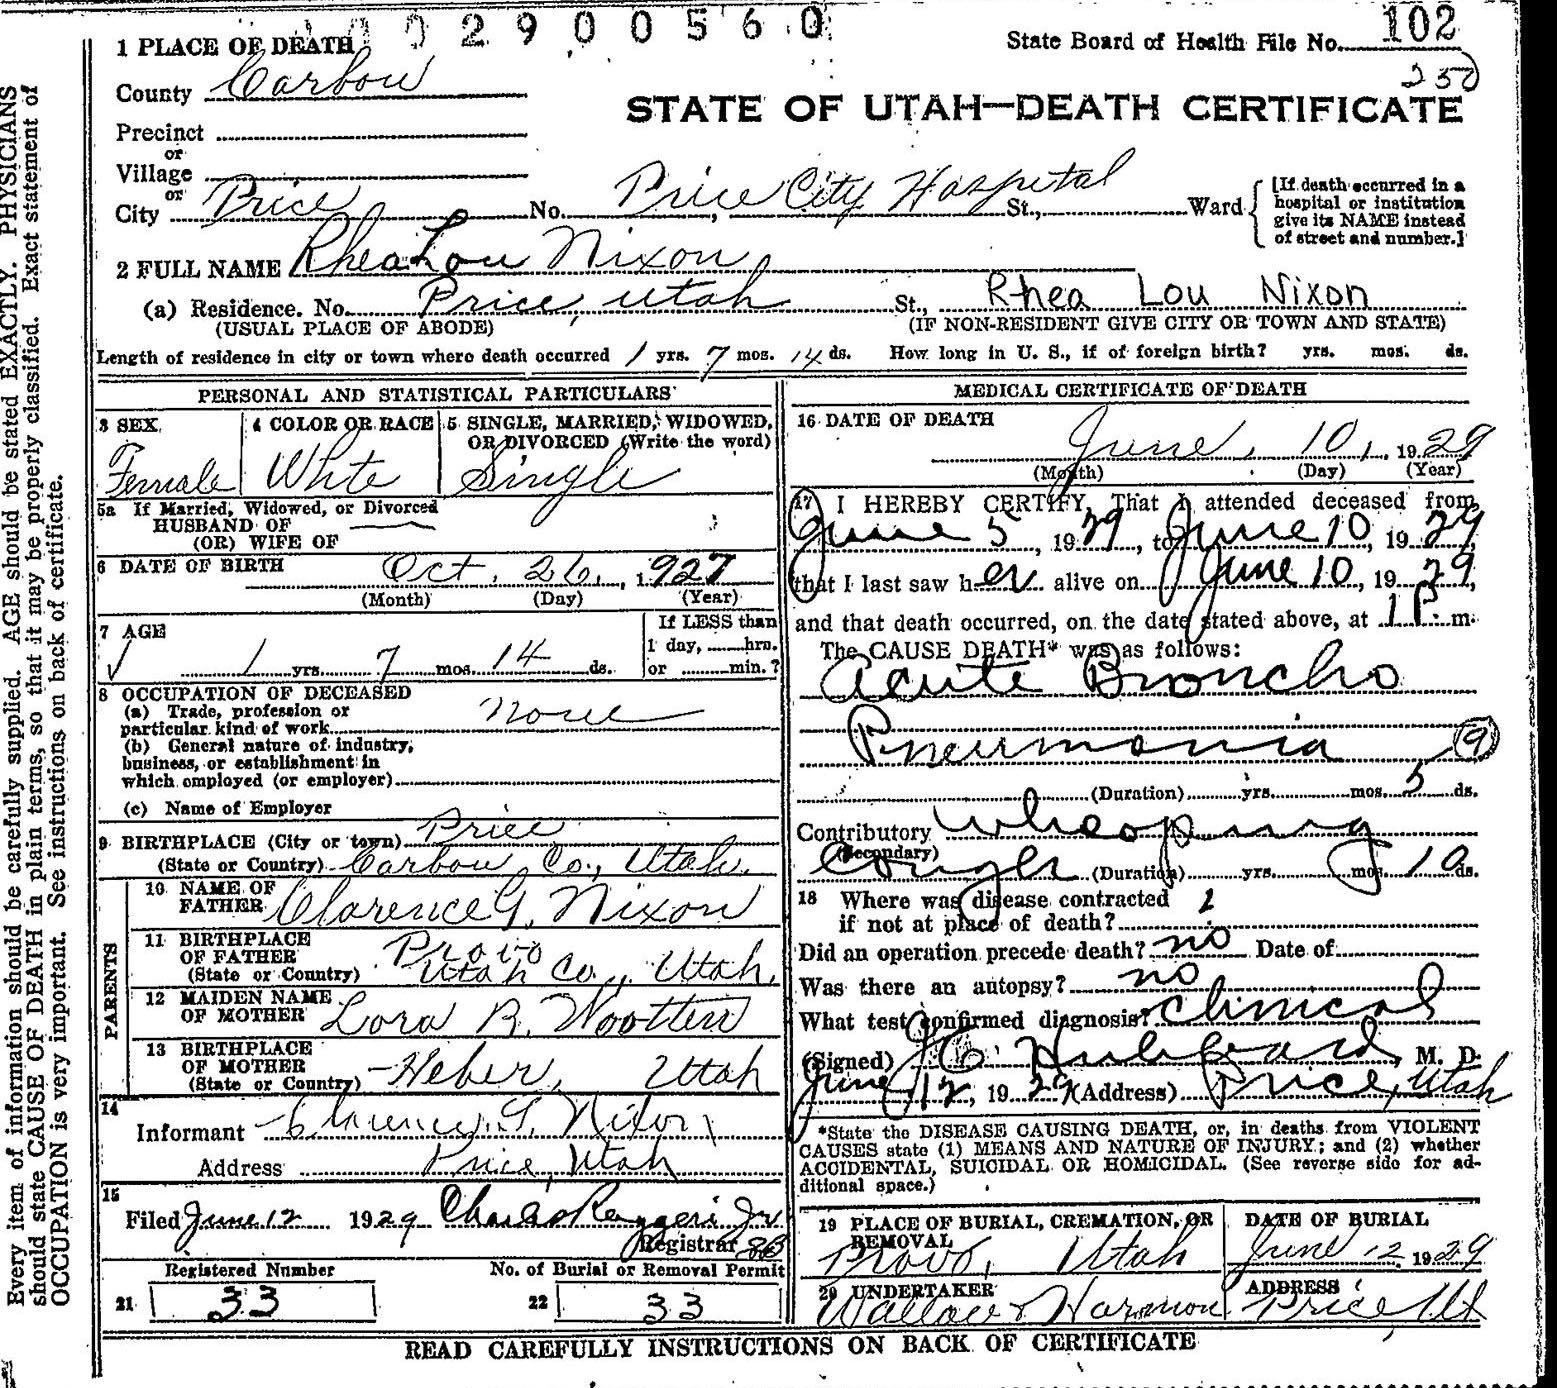 0 2 9 0 0 5 6 0
State Board of Health File No. 102
250
1 PLACE OF DEATH
County Carbon
STATE OF UTAH—DEATH CERTIFICATE
Precinct
or
Village
or
City Price No. Price City Hospital St., Ward
[If death occurred in a hospital or institution give its NAME instead of street and number.]
2 FULL NAME Rhea Lou Nixon
(a) Residence. No. Price, Utah St., Rhea Lou Nixon
(USUAL PLACE OF ABODE) (IF NON-RESIDENT GIVE CITY OR TOWN AND STATE)
Length of residence in city or town where death occurred 1 yrs. 7 mos. 14 ds. How long in U. S., if of foreign birth? yrs. mos. ds.
PERSONAL AND STATISTICAL PARTICULARS
3 SEX
Female
4 COLOR OR RACE
White
5 SINGLE, MARRIED, WIDOWED,
OR DIVORCED (Write the word)
Single
5a If Married, Widowed, or Divorced
HUSBAND OF
(OR) WIFE OF
6 DATE OF BIRTH Oct. 26, 1927
(Month) (Day) (Year)
7 AGE
1 yrs. 7 mos. 14 ds.
If LESS than
1 day, hrs.
or min.?
8 OCCUPATION OF DECEASED
(a) Trade, profession or
particular kind of work None
(b) General nature of industry,
business, or establishment in
which employed (or employer)
(c) Name of Employer
9 BIRTHPLACE (City or town) Price
(State or Country) Carbon Co., Utah.
PARENTS
10 NAME OF
FATHER Clarence G. Nixon
11 BIRTHPLACE
OF FATHER Provo
(State or Country) Utah Co., Utah.
12 MAIDEN NAME
OF MOTHER Lora B. Wootten
13 BIRTHPLACE
OF MOTHER
(State or Country) Heber, Utah
14
Informant Clarence G. Nixon
Address Price, Utah
15
Filed June 12 1929 Chas Ruggeri Jr
Registrar
Registered Number
21 33
No. of Burial or Removal Permit
22 33
MEDICAL CERTIFICATE OF DEATH
16 DATE OF DEATH
June, 10, 1929
(Month) (Day) (Year)
17 I HEREBY CERTIFY, That I attended deceased from
June 5, 1929, to June 10, 1929,
that I last saw her alive on June 10, 1929,
and that death occurred, on the date stated above, at 1 P. m.
The CAUSE DEATH* was as follows:
Acute Broncho
Pneumonia 9
(Duration) yrs. mos. 5 ds.
Contributory Whooping
(Secondary)
Cough (Duration) yrs. mos. 10 ds.
18 Where was disease contracted
if not at place of death?
Did an operation precede death? no Date of
Was there an autopsy? no
What test confirmed diagnosis? Clinical
(Signed) Hubbard, M. D.
June 12, 1929 (Address) Price, Utah
*State the DISEASE CAUSING DEATH, or, in deaths from VIOLENT
CAUSES state (1) MEANS AND NATURE OF INJURY; and (2) whether
ACCIDENTAL, SUICIDAL OR HOMICIDAL. (See reverse side for ad-
ditional space.)
19 PLACE OF BURIAL, CREMATION, OR
REMOVAL
Provo, Utah
DATE OF BURIAL
June 12 1929
20 UNDERTAKER
Wallace & Harmon
ADDRESS
Price, Ut
READ CAREFULLY INSTRUCTIONS ON BACK OF CERTIFICATE
Every item of information should be carefully supplied. AGE should be stated EXACTLY. PHYSICIANS
should state CAUSE OF DEATH in plain terms, so that it may be properly classified. Exact statement of
OCCUPATION is very important. See instructions on back of certificate.